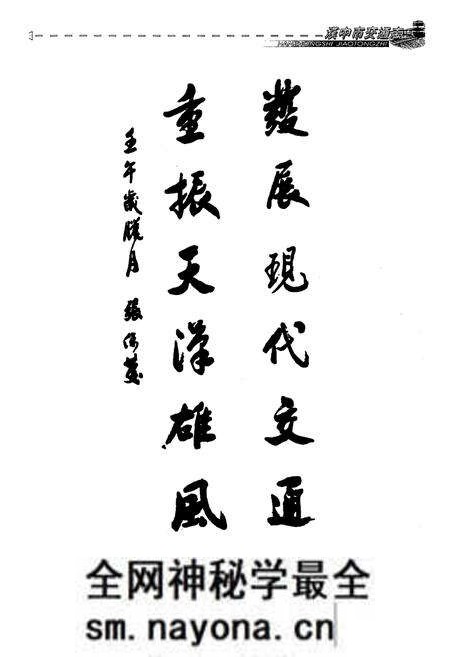 漢中市交通志
HANZHONGSHI JIAOTONGZHI
發展現代交通
重振天漢雄風
壬午歲臘月 張
全网神秘学最全
sm.nayona.cn